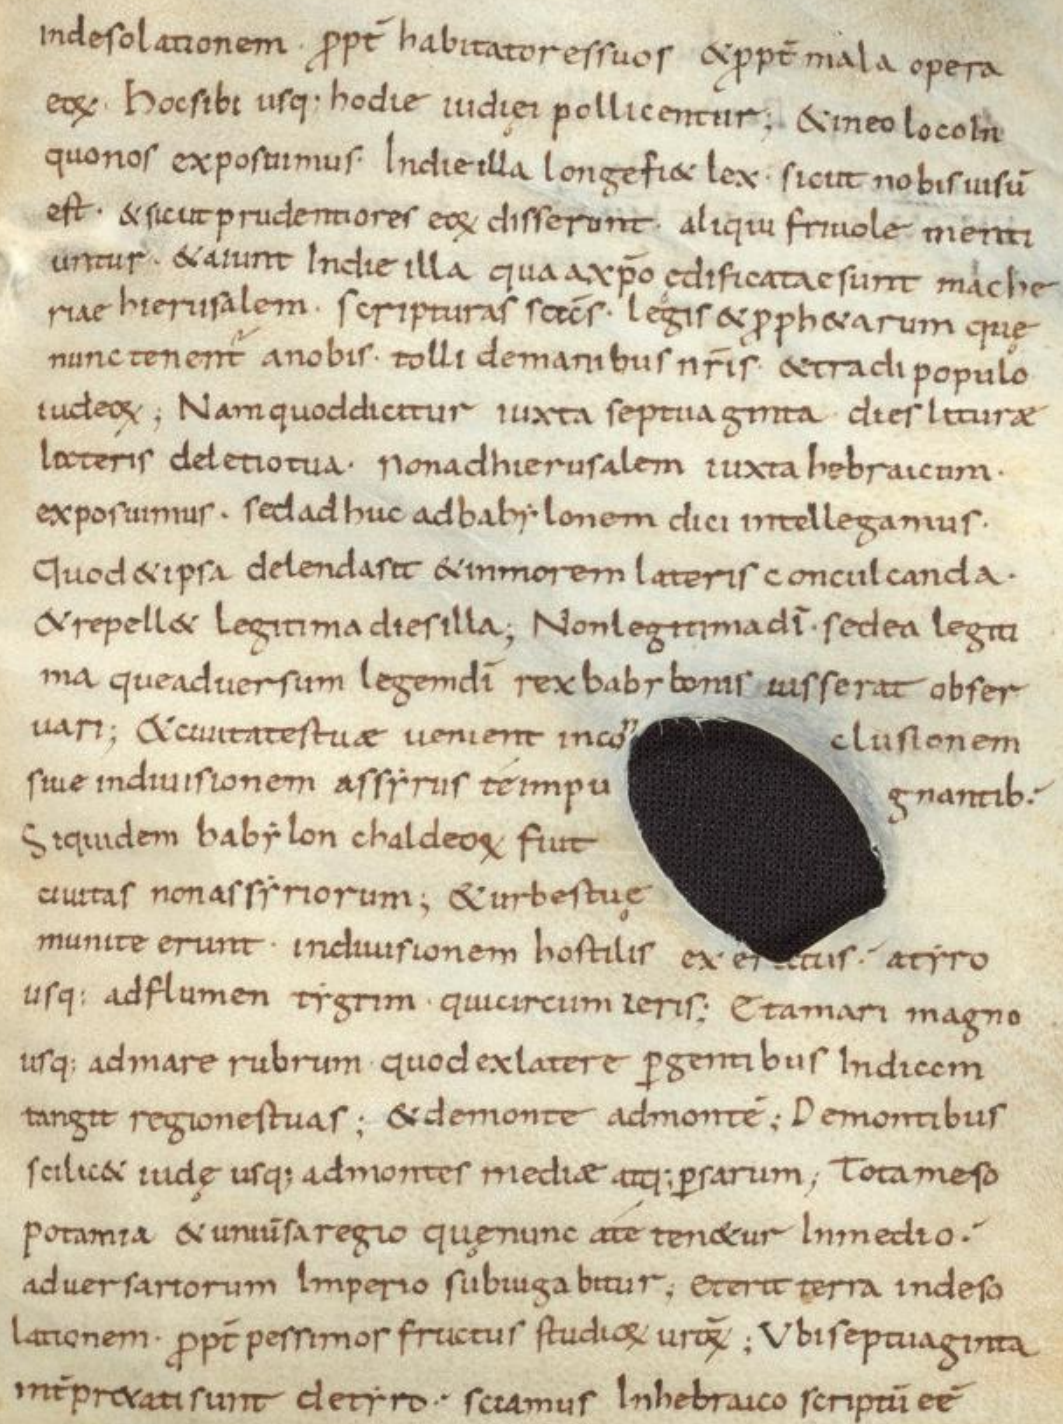 Indesolationem · ꝓpt̄ habitatoressuos &ꝓpt̄ mala opera
eoꝝ· hocsibi usq; hodie iudęi pollicentur; &ineo loco In
quonos exposuimus· Indie illa longefi& lex · sicut nobisuisū
est· &sicut prudentiores eoꝝ disserunt· aliqui friuole menti
untur· &aiunt Indie illa qua axp̄o ędificatae sunt mache
riae hierusalem · scripturas sc̄as· legis &ꝓph&arum quę
nunctenent᷑ anobis· tolli demanibus nr̄is· &tradi populo
iudeoꝝ; Namquoddicitur iuxta septuaginta dies lituræ
lateris deletiotua· nonadhierusalem iuxta hebraicum·
exposuimus· sedadhuc adbabẏlonem dici intellegamus·
Quod&ipsa delendasit &inmorem lateris conculcanda·
&repell& legitima diesilla; Nonlegitimadī· sedea legiti
ma queaduersum legemdī rex babẏlonis iusserat obser
uari; &ciuitatestuæ uenient incon clusionem
siue indiuisionem assẏriis tempu gnantib;
Siquidem babẏlon chaldeoꝝ fuit
ciuitas nonassẏriorum; &urbestuę
munite erunt· indiuisionem hostilis exercitus· atẏro
usq; adflumen tẏgrim · quicircumieris; Etamari magno
usq; admare rubrum quodexlatere ꝑgentibus Indicem
tangit regionestuas; &demonte admontē; Demontibus
scilic& iudę usq; admontes mediæ atq; ꝑsarum; Totameso
potamia &uniuersaregio quęnunc ate ten&ur Inmedio·
aduersariorum Imperio subiugabitur; eterit terra indeso
lationem· ꝓpt̄ pessimos fructus studioꝝ urōꝝ; Vbiseptuaginta
int̄pr&ati sunt detẏro· sciamus Inhebraico scriptū eē